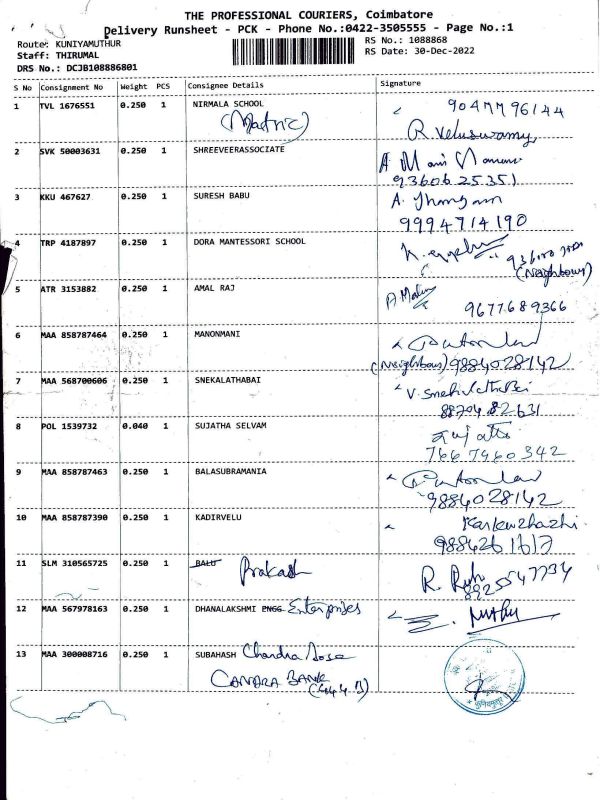 THE PROFESSIONAL COURIERS, Coimbatore
Delivery Runsheet - PCK - Phone No.:0422-3505555 - Page No.:1
Route: KUNIYAMUTHUR
RS No.: 1088868
Staff: THIRUMAL
RS Date: 30-Dec-2022
DRS No.: DCJB108886801
S No Consignment No Weight PCS Consignee Details Signature
1 TVL 1676551 0.250 1 NIRMALA SCHOOL 9047796144
(Matric) R Veluswamy
2 SVK 50003631 0.250 1 SHREEVEERASSOCIATE
9360625351
3 KKU 467627 0.250 1 SURESH BABU
9994714190
4 TRP 4187897 0.250 1 DORA MANTESSORI SCHOOL
(Neighbour)
5 ATR 3153882 0.250 1 AMAL RAJ
9677689366
6 MAA 858787464 0.250 1 MANONMANI
(Neighbour) 9884028142
7 MAA 568700606 0.250 1 SNEKALATHABAI V. Snehalatha Bai
8870482631
8 POL 1539732 0.040 1 SUJATHA SELVAM
7667460342
9 MAA 858787463 0.250 1 BALASUBRAMANIA
9884028142
10 MAA 858787390 0.250 1 KADIRVELU Karkuzhazhi
9884261617
11 SLM 310565725 0.250 1 BALU Prakash
8925547734
12 MAA 567978163 0.250 1 DHANALAKSHMI ENGG Enterprises Muthu
13 MAA 300008716 0.250 1 SUBAHASH Chandra Bose
CANARA BANK